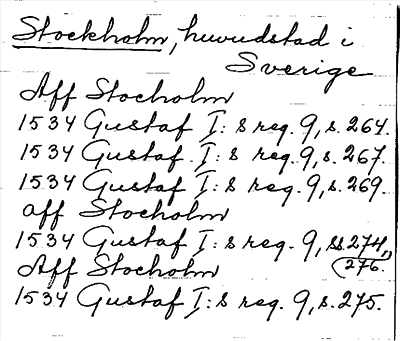 Stockholm, huvudstad i
Sverige
Aff Stocholm
1534 Gustaf I:s reg. 9, s. 264.
1534 Gustaf I:s reg. 9, s. 267.
1534 Gustaf I:s reg. 9, s. 269.
aff Stocholm
1534 Gustaf I:s reg. 9, ss. 274,
276.
Aff Stocholm
1534 Gustaf I:s reg. 9, s. 275.